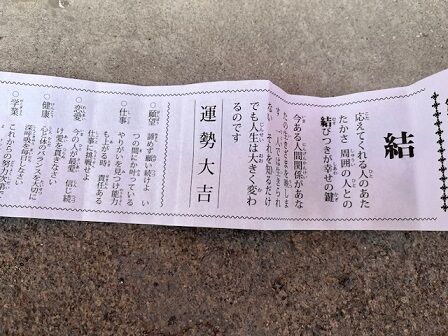 結
応えてくれる人のあた
たかさ 周囲の人との
結びつきが幸せの鍵
今ある人間関係があな
ない それを知るだけ
でも人生は大きく変わ
るのです
運勢大吉
○願望 諦めず願い続けよ い
つの間にか叶っている
○仕事 やりがいを見つけ能力
も上がる時 責任ある
仕事に挑戦せよ
○恋愛 今の人が最愛 信じ続
け愛を貫きなさい
○健康 心と体のバランスを大切に
深呼吸を毎日しなさい
○学業 これからの努力次第で